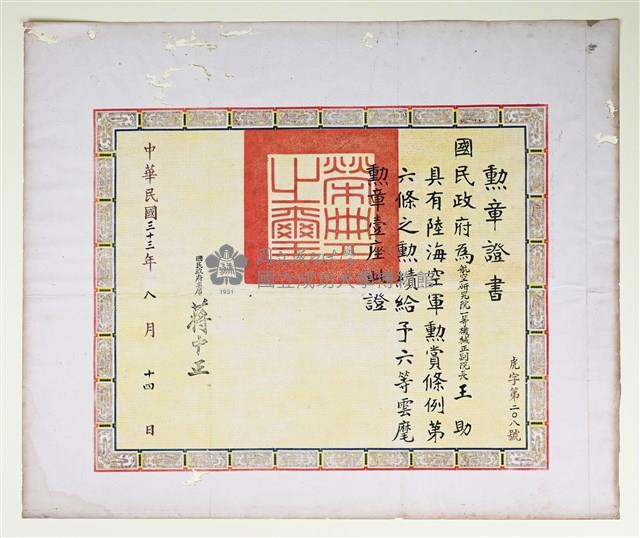 勲章證書
國民政府為航空研究院一等機械正副院長王助
具有陸海空軍勲賞條例第
六條之勲績給予六等雲麾
勲章壹座此證
虎字第二〇八號
榮典之璽
國民政府主席
蔣中正
中華民國三十三年八月十四日
國立成功大學博物館
1931